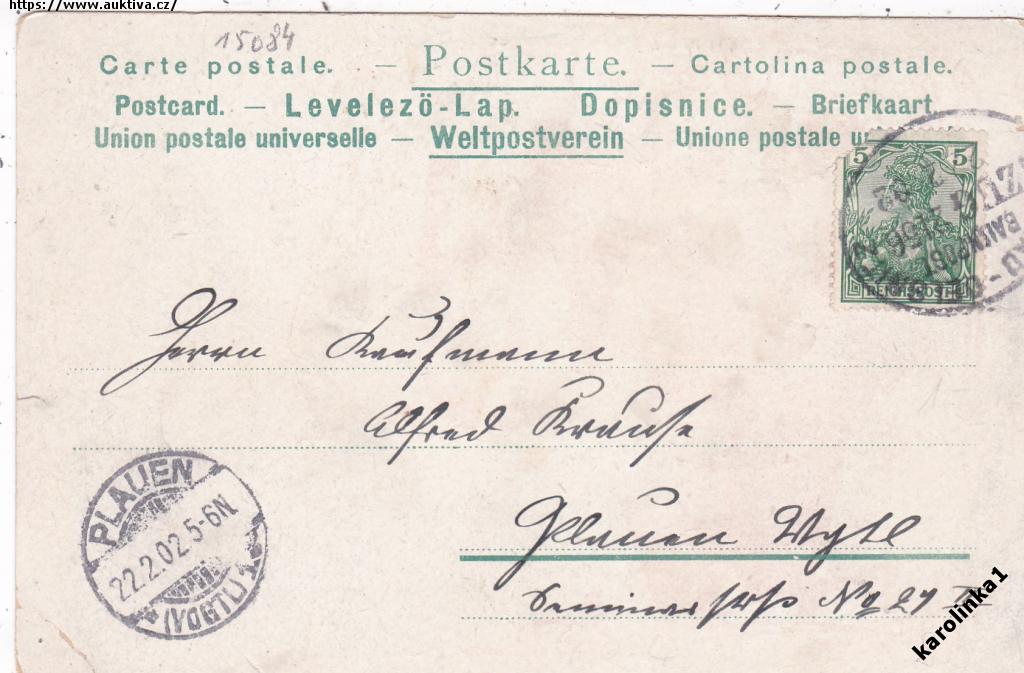 https://www.auktiva.cz/
15084
Carte postale. — Postkarte. — Cartolina postale.
Postcard. — Levelezö-Lap. Dopisnice. — Briefkaart.
Union postale universelle — Weltpostverein — Unione postale
5 5
BAHNPOST
REICHSPOST
Herrn Kaufmann
Alfred Krause
Plauen Vgtl
Seminarstraße No 27 II
PLAUEN
22.2.02.5-6N.
(VOGTL.)
karolinka1